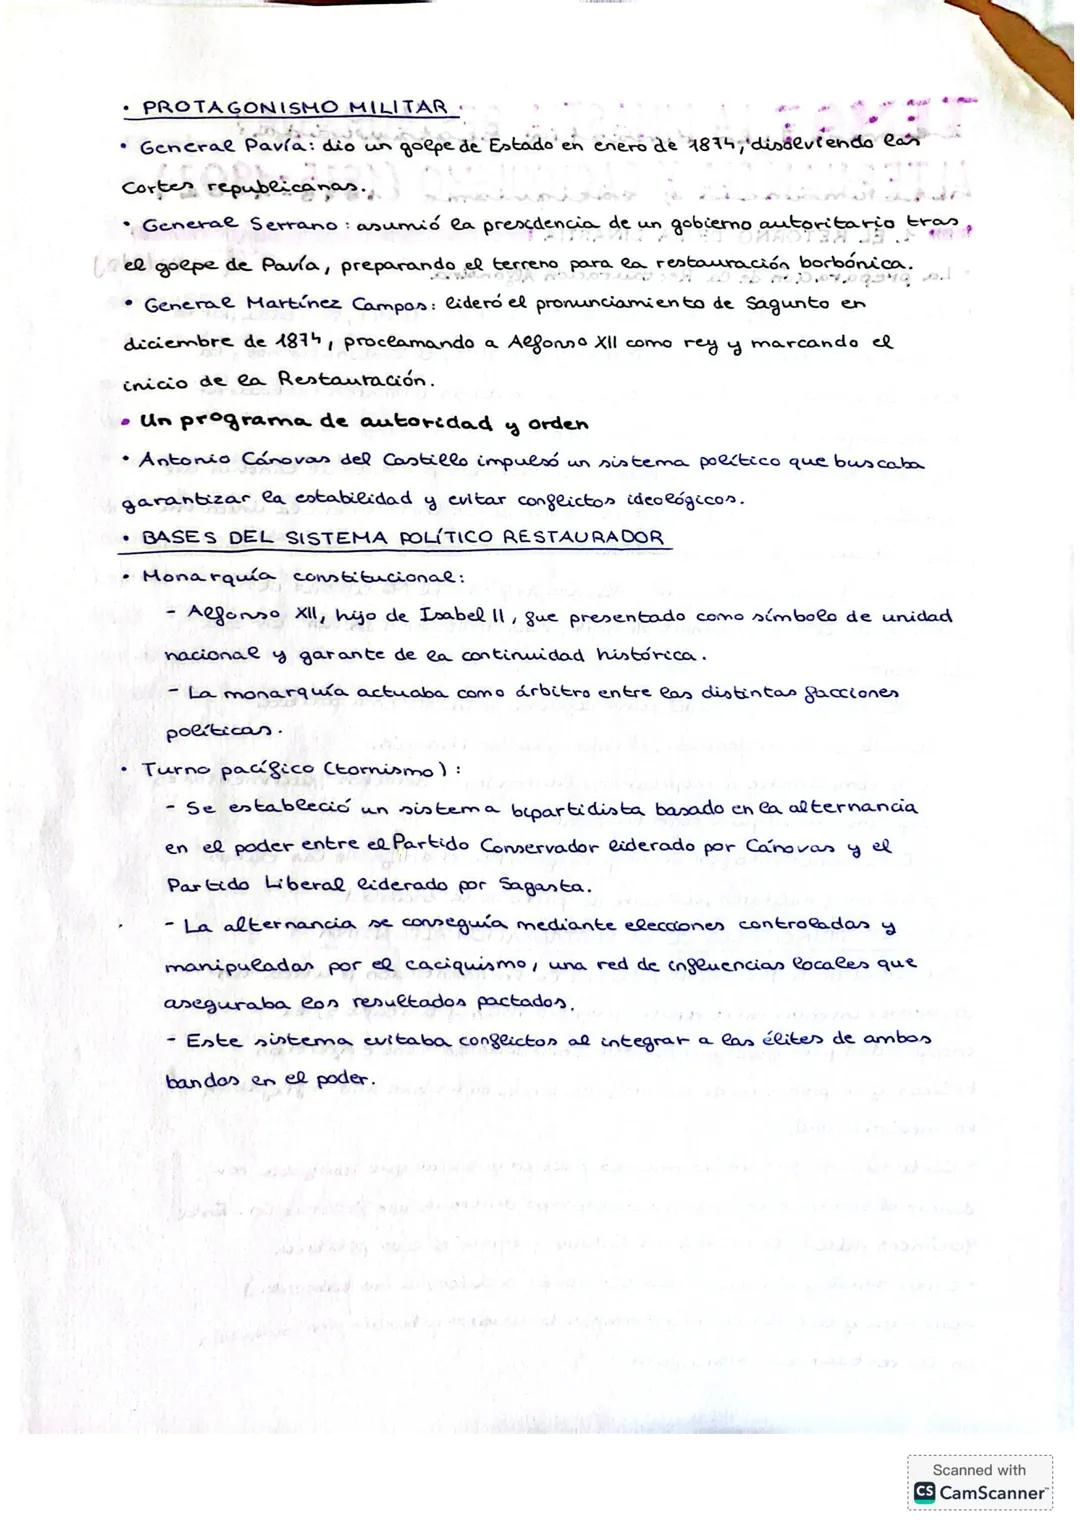 • PROTAGONISMO MILITAR
• General Pavía: dio un golpe de Estado en enero de 1874, disolviendo las
Cortes republicanas.
• General Serrano: asumió la presidencia de un gobierno autoritario tras
el golpe de Pavía, preparando el terreno para la restauración borbónica.
• General Martínez Campos: lideró el pronunciamiento de Sagunto en
diciembre de 1874, proclamando a Alfonso XII como rey y marcando el
inicio de la Restauración.
• Un programa de autoridad y orden
• Antonio Cánovas del Castillo impulsó un sistema político que buscaba
garantizar la estabilidad y evitar conflictos ideológicos.
• BASES DEL SISTEMA POLÍTICO RESTAURADOR
• Monarquía constitucional:
- Alfonso XII, hijo de Isabel II, fue presentado como símbolo de unidad
nacional y garante de la continuidad histórica.
- La monarquía actuaba como árbitro entre las distintas facciones
políticas.
• Turno pacífico (tornismo):
- Se estableció un sistema bipartidista basado en la alternancia
en el poder entre el Partido Conservador liderado por Cánovas y el
Partido Liberal liderado por Sagasta.
- La alternancia se conseguía mediante elecciones controladas y
manipuladas por el caciquismo, una red de influencias locales que
aseguraba los resultados pactados.
- Este sistema evitaba conflictos al integrar a las élites de ambos
bandos en el poder.
Scanned with
CS CamScanner